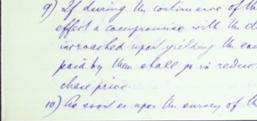 9) If during the continuance of th
effect a compromise with the d
incroached upon yielding the
paid by them shall go in reduc
chase price
10) As soon as upon the survey of th